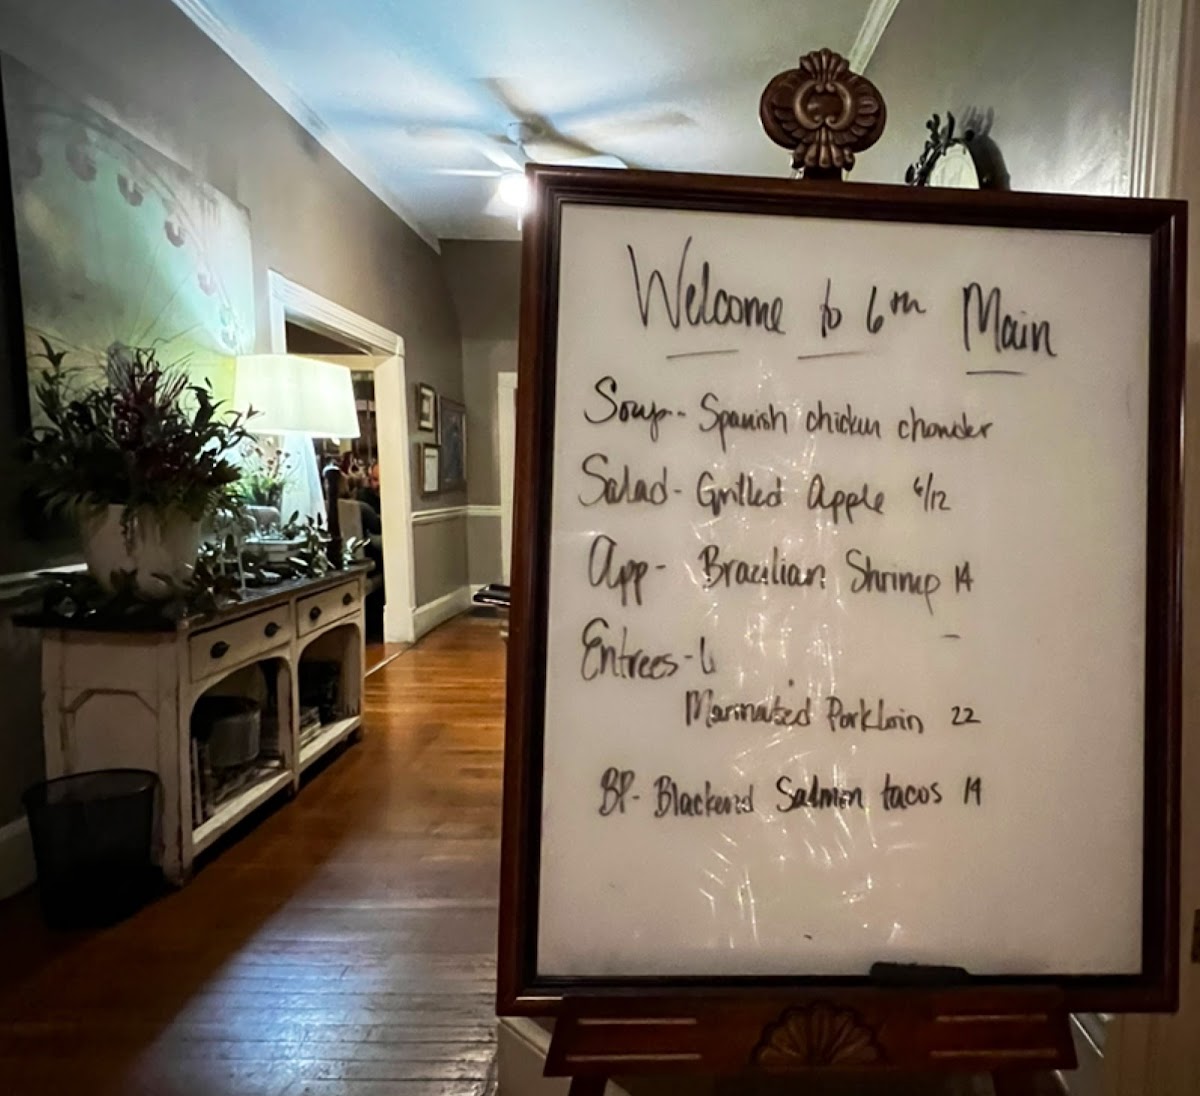 Welcome to 6th Main
Soup-- Spanish chicken chowder
Salad - Grilled Apple 6/12
App - Brazilian Shrimp 14
Entrees -
Marinated Porkloin 22
BP- Blackened Salmon tacos 14